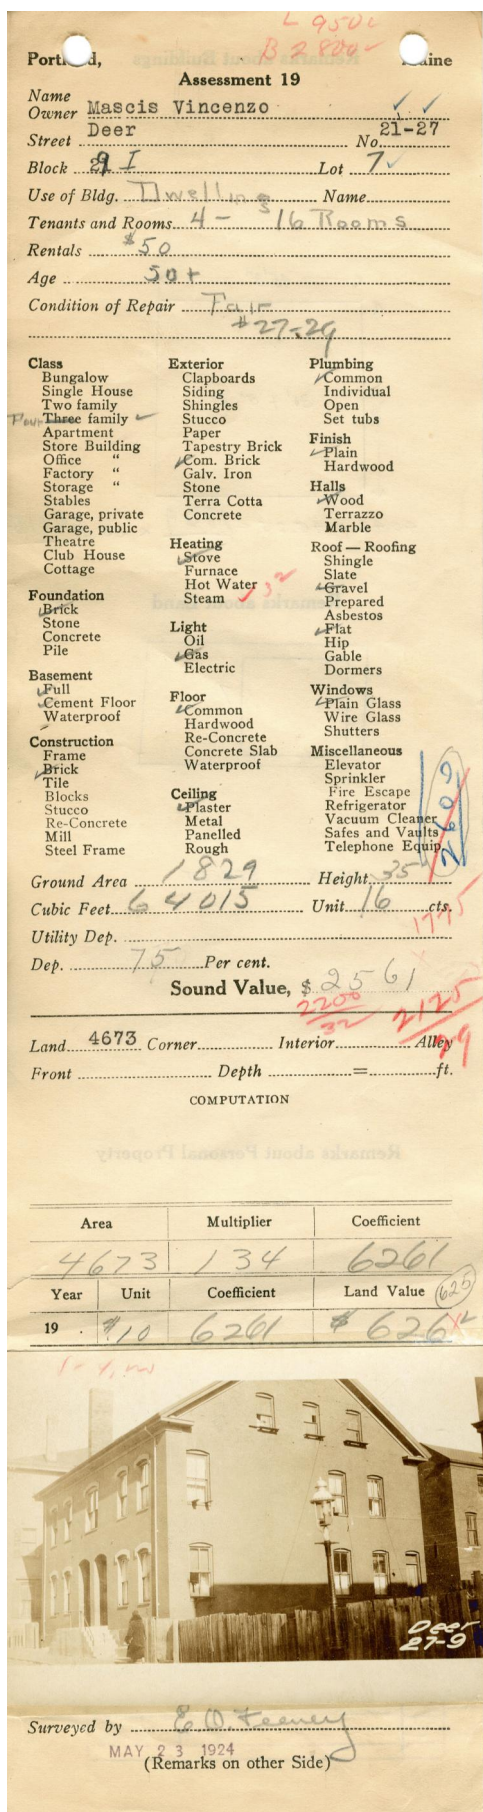 L 950
B 2800
Portland, Maine
Assessment 19
Name
Owner Mascis Vincenzo
Street Deer No. 21-27
Block 29 I Lot 7
Use of Bldg. Dwellings Name
Tenants and Rooms 4 - 16 Rooms
Rentals $50
Age 50+
Condition of Repair Fair
$27-29
Class
Bungalow
Single House
Two family
Four Three family
Apartment
Store Building
Office "
Factory "
Storage "
Stables
Garage, private
Garage, public
Theatre
Club House
Cottage
Foundation
Brick
Stone
Concrete
Pile
Basement
Full
Cement Floor
Waterproof
Construction
Frame
Brick
Tile
Blocks
Stucco
Re-Concrete
Mill
Steel Frame
Exterior
Clapboards
Siding
Shingles
Stucco
Paper
Tapestry Brick
Com. Brick
Galv. Iron
Stone
Terra Cotta
Concrete
Heating
Stove
Furnace
Hot Water
Steam
Light
Oil
Gas
Electric
Floor
Common
Hardwood
Re-Concrete
Concrete Slab
Waterproof
Ceiling
Plaster
Metal
Panelled
Rough
Plumbing
Common
Individual
Open
Set tubs
Finish
Plain
Hardwood
Halls
Wood
Terrazzo
Marble
Roof — Roofing
Shingle
Slate
Gravel
Prepared
Asbestos
Flat
Hip
Gable
Dormers
Windows
Plain Glass
Wire Glass
Shutters
Miscellaneous
Elevator
Sprinkler
Fire Escape
Refrigerator
Vacuum Cleaner
Safes and Vaults
Telephone Equip.
2600
Ground Area 1829 Height 35
Cubic Feet 64015 Unit 16 cts.
1775
Utility Dep.
Dep. 75 Per cent.
Sound Value, $ 2561
2200
32
2125
29
Land 4673 Corner Interior Alley
Front Depth = ft.
COMPUTATION
Area Multiplier Coefficient
4673 134 6261
Year Unit Coefficient Land Value 625
19 . $.10 6261 $ 626
Deer
27-9
Surveyed by E. O. Feeney
MAY 23 1924
(Remarks on other Side)